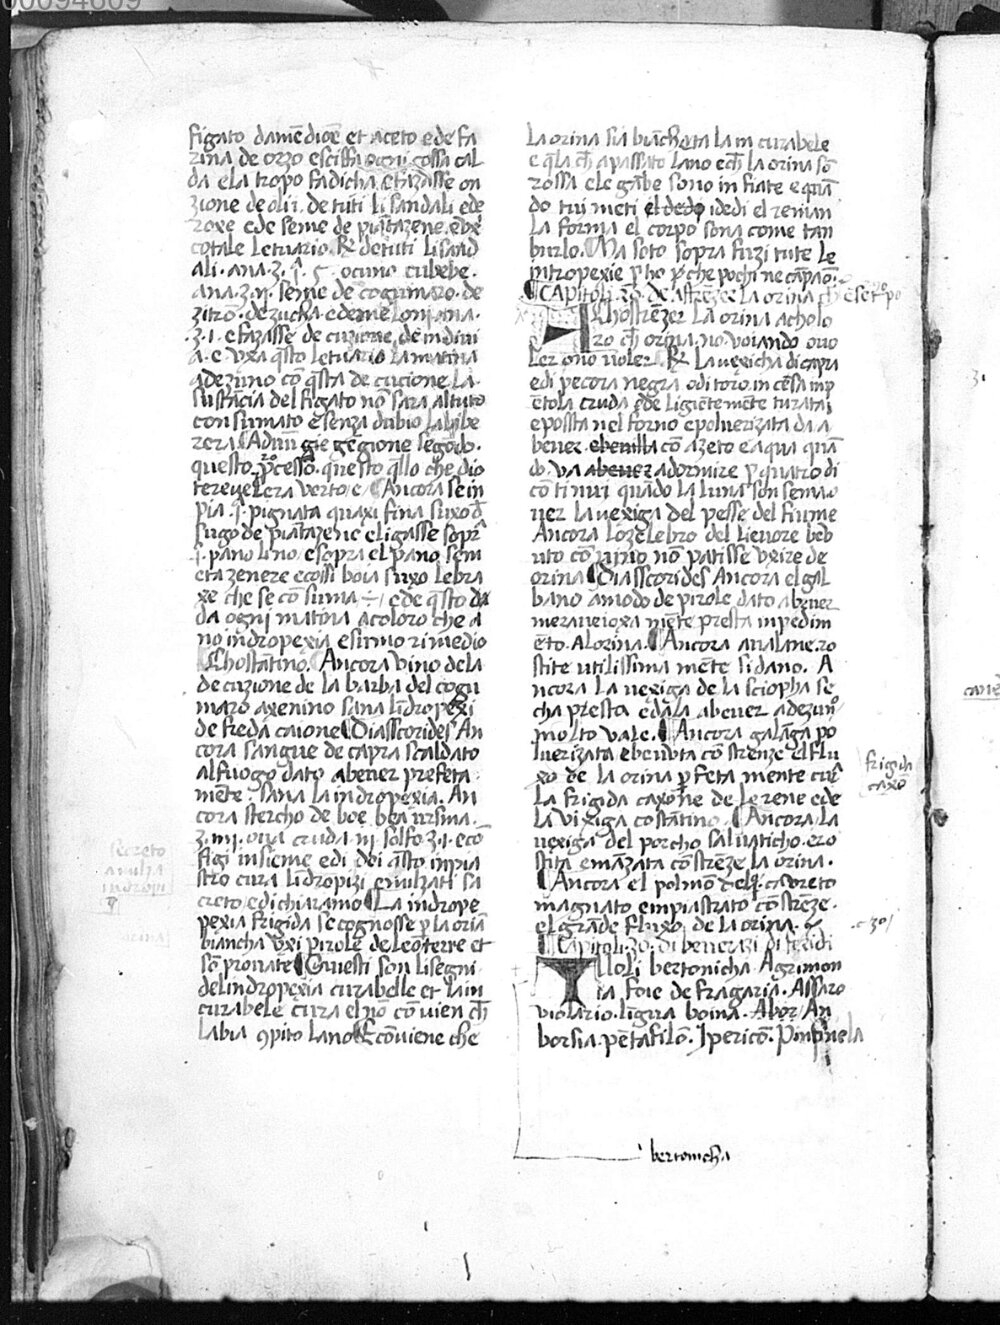 00094609
figato damẽdioẽ et aceto e de fa
rina de orzo e sciffa ogni gossa cal
da e la tropo fadicha e fazasse on
zione de olii. de tuti li sandali e de
roxe e de seme de piãtazene. e bẽ
cotale letuario. ℞ de tuti li sand
ali. ana. ʒ. cubebe.
ana. ʒ. ij. seme de cogumaro. de
zitrõ. de zucha e de melon. ana.
ʒ. i. e fazasse decuzione de indiui
a. e uxa q̃sto letuario la matina
a dezuno cõ q̃sta decucione. la
sustãcia del figato nõ sara al tuto
consumato e senza dubio la libe
rera
questo ꝓcesso. questo q̃llo che dio
Ancora se in
pia .i. pignata quaxi fina suxo d̃
sugo de piãtazene e ligasse sopr̃
.i. pano lino e sopra el pano. sem
eta zenere e cossi boia suxo le bra
xe che se cõsuma ÷ / e de q̃sto
da ogni matina a coloro che a
no indropexia e sumo rimedio
Chostãtino. Ancora vino de la
decuzione de la barba del cogu
maro axenino sana lĩdropexi
de freda caione Diasscorides An
cora sangue de capra scaldato
al fuogo dato a bever prefeta
mẽte. sana la indropexia. An
cora stercho de boe
ʒ. iiij. oua cruda. iij. solfo. ʒ. i. e cõ
figi insieme e di doi q̃sto inpia
stro cura lĩdropizi e nulzati sa
creto e dichiaramo La indrope
pexia frigida se cognosse ꝑ la oriã
biancha
sõ prouate Questi son li segni.
del indropexia curabelle et la in
curabele cura el nõ cõvien ch̃
l abia ꝯpito l ano Ecõviene che
secreto
a nulza
indropi
la orina sia biãcheta la in curabele
e q̃la ch̃ a passato l ano e ch̃ la orina sõ
rossa e le gãbe sono infiate e quã
do tui meti el dedo i dedi el reman
la forma el corpo sona come tan
burlo. Ma soto sopra fuzi tute le
intropexie
Capitoli. 29. de astrẽzer la orina ch̃ ese
Chostrẽzer la orina a cholo
ro ch̃ orina. no. voiando ouo
ler o nõ uoler. ℞ la uexicha di capra
e di pecora negra o di toro. in cẽsa inp
ẽtola cruda
e possta nel forno e poluerizata da a
bever. cõ azeto e aqua quã
do. va a bever a dormire ꝑ quatro di
cõtinui quãdo la luna son semao
uer la uexiga del pesse del fiume
Ancora lo zelebro del lieuore beb
uto cõ uino nõ patisse uxire de
orina Diasscorides Ancora el gal
bano a modo de pirole dato a bever
meraueioxa mẽte presta inpedim
ẽto. a l orina. Ancora aualane. ro
stite utilissima mẽte si dano. A
ncora la uexiga de la sciopha se
cha presta e dala a bever a dezun
molto vale. Ancora galãga po
luerizata e bevota cõstrenze el flu
xo de la orina ꝑfeta mente
la frigida caxone de le rene e de
la vixiga costatino. Ancora. la
uexiga del porcho saluaticho. ero
stita e mazata cõstrẽze la orina.
Ancora el polmõ
magnato e inpiastrato cõstrẽze.
el grãde fluxo. de la orina.
Capitoli. 30. di beverazi di feridi
Tuoli bertonicha. Agrimon
ia foie de fragaria. Assaro
violario. ligua boina.
borsia. pẽtafilõ. Ipericõ. Pinpinela
frigida
caxõ
c. 30
bertonicha